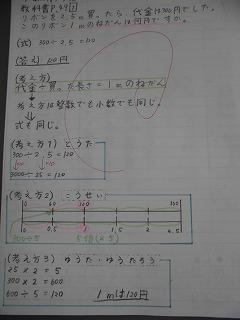 教科書P.43 2
リボンを2.5m買ったら、代金は300円でした。
このリボン1mのねだんは何円ですか。
(式) 300÷2.5=120
(答え) 120円
(考え方)
代金÷買った長さ=1mのねだん
考え方は整数でも小数でも同じ。
式も同じ。
(考え方1) とうた
300÷2.5=120
×10 ×10
3000÷25=120
(考え方2) こうせい
0 60 300
0 0.5 1 2 2.5
300÷5 5倍(×5)
(考え方3) ゆうた・ゆうたろう
2.5×2=5
300×2=600
600÷5=120 1mは120円